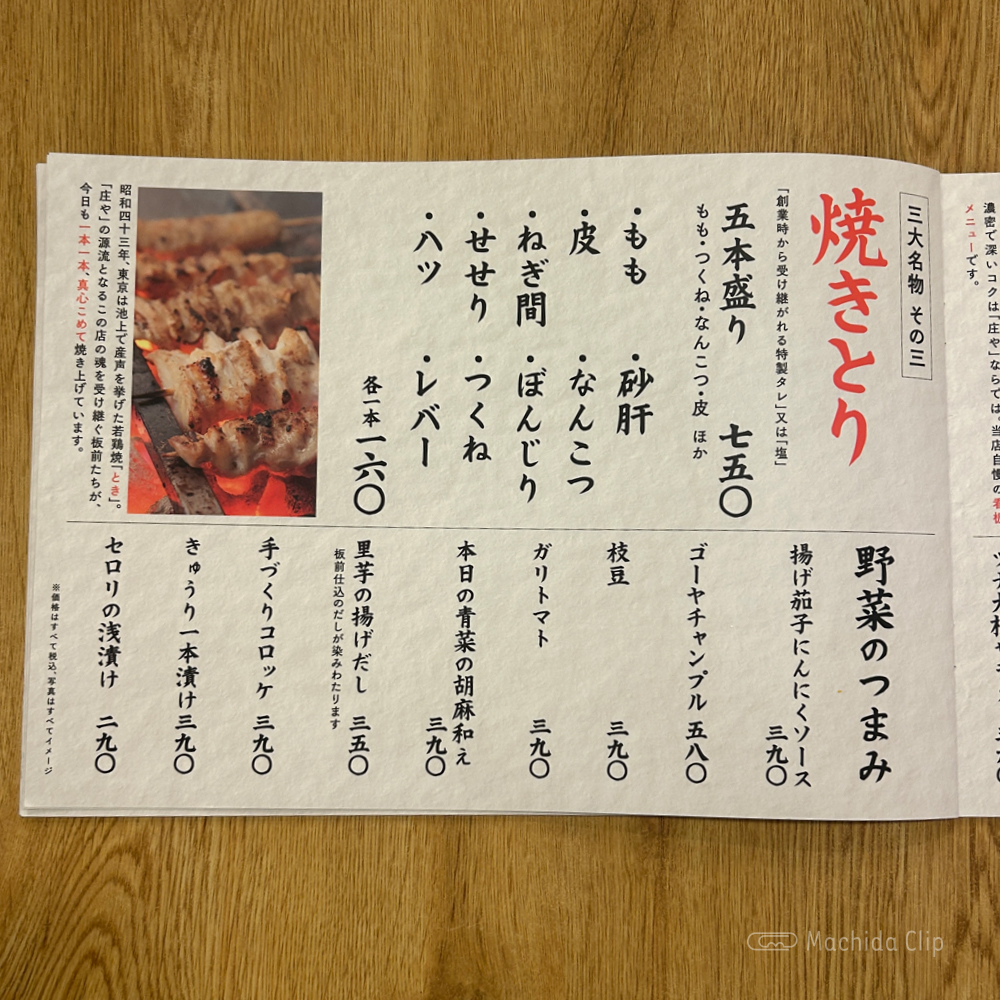 濃密で深いコクは「庄や」ならでは。当店自慢の看板
メニューです。
三大名物 その三
焼きとり
「創業時から受け継がれる特製タレ」又は「塩」
五本盛り 七五〇
もも・つくね・なんこつ・皮 ほか
・もも ・砂肝
・皮 ・なんこつ
・ねぎ間 ・ぼんじり
・せせり ・つくね
・ハツ ・レバー
各一本 一六〇
昭和四十三年、東京は池上で産声を挙げた若鶏焼「とき」。
「庄や」の源流となるこの店の魂を受け継ぐ板前たちが、
今日も一本一本、真心こめて焼き上げています。
野菜のつまみ
揚げ茄子にんにくソース
三九〇
ゴーヤチャンプル 五八〇
枝豆 三九〇
ガリトマト 三九〇
本日の青菜の胡麻和え
三九〇
里芋の揚げだし 三五〇
板前仕込のだしが染みわたります
手づくりコロッケ 三九〇
きゅうり一本漬け 三九〇
セロリの浅漬け 二九〇
※価格はすべて税込、写真はすべてイメージ
Machida Clip